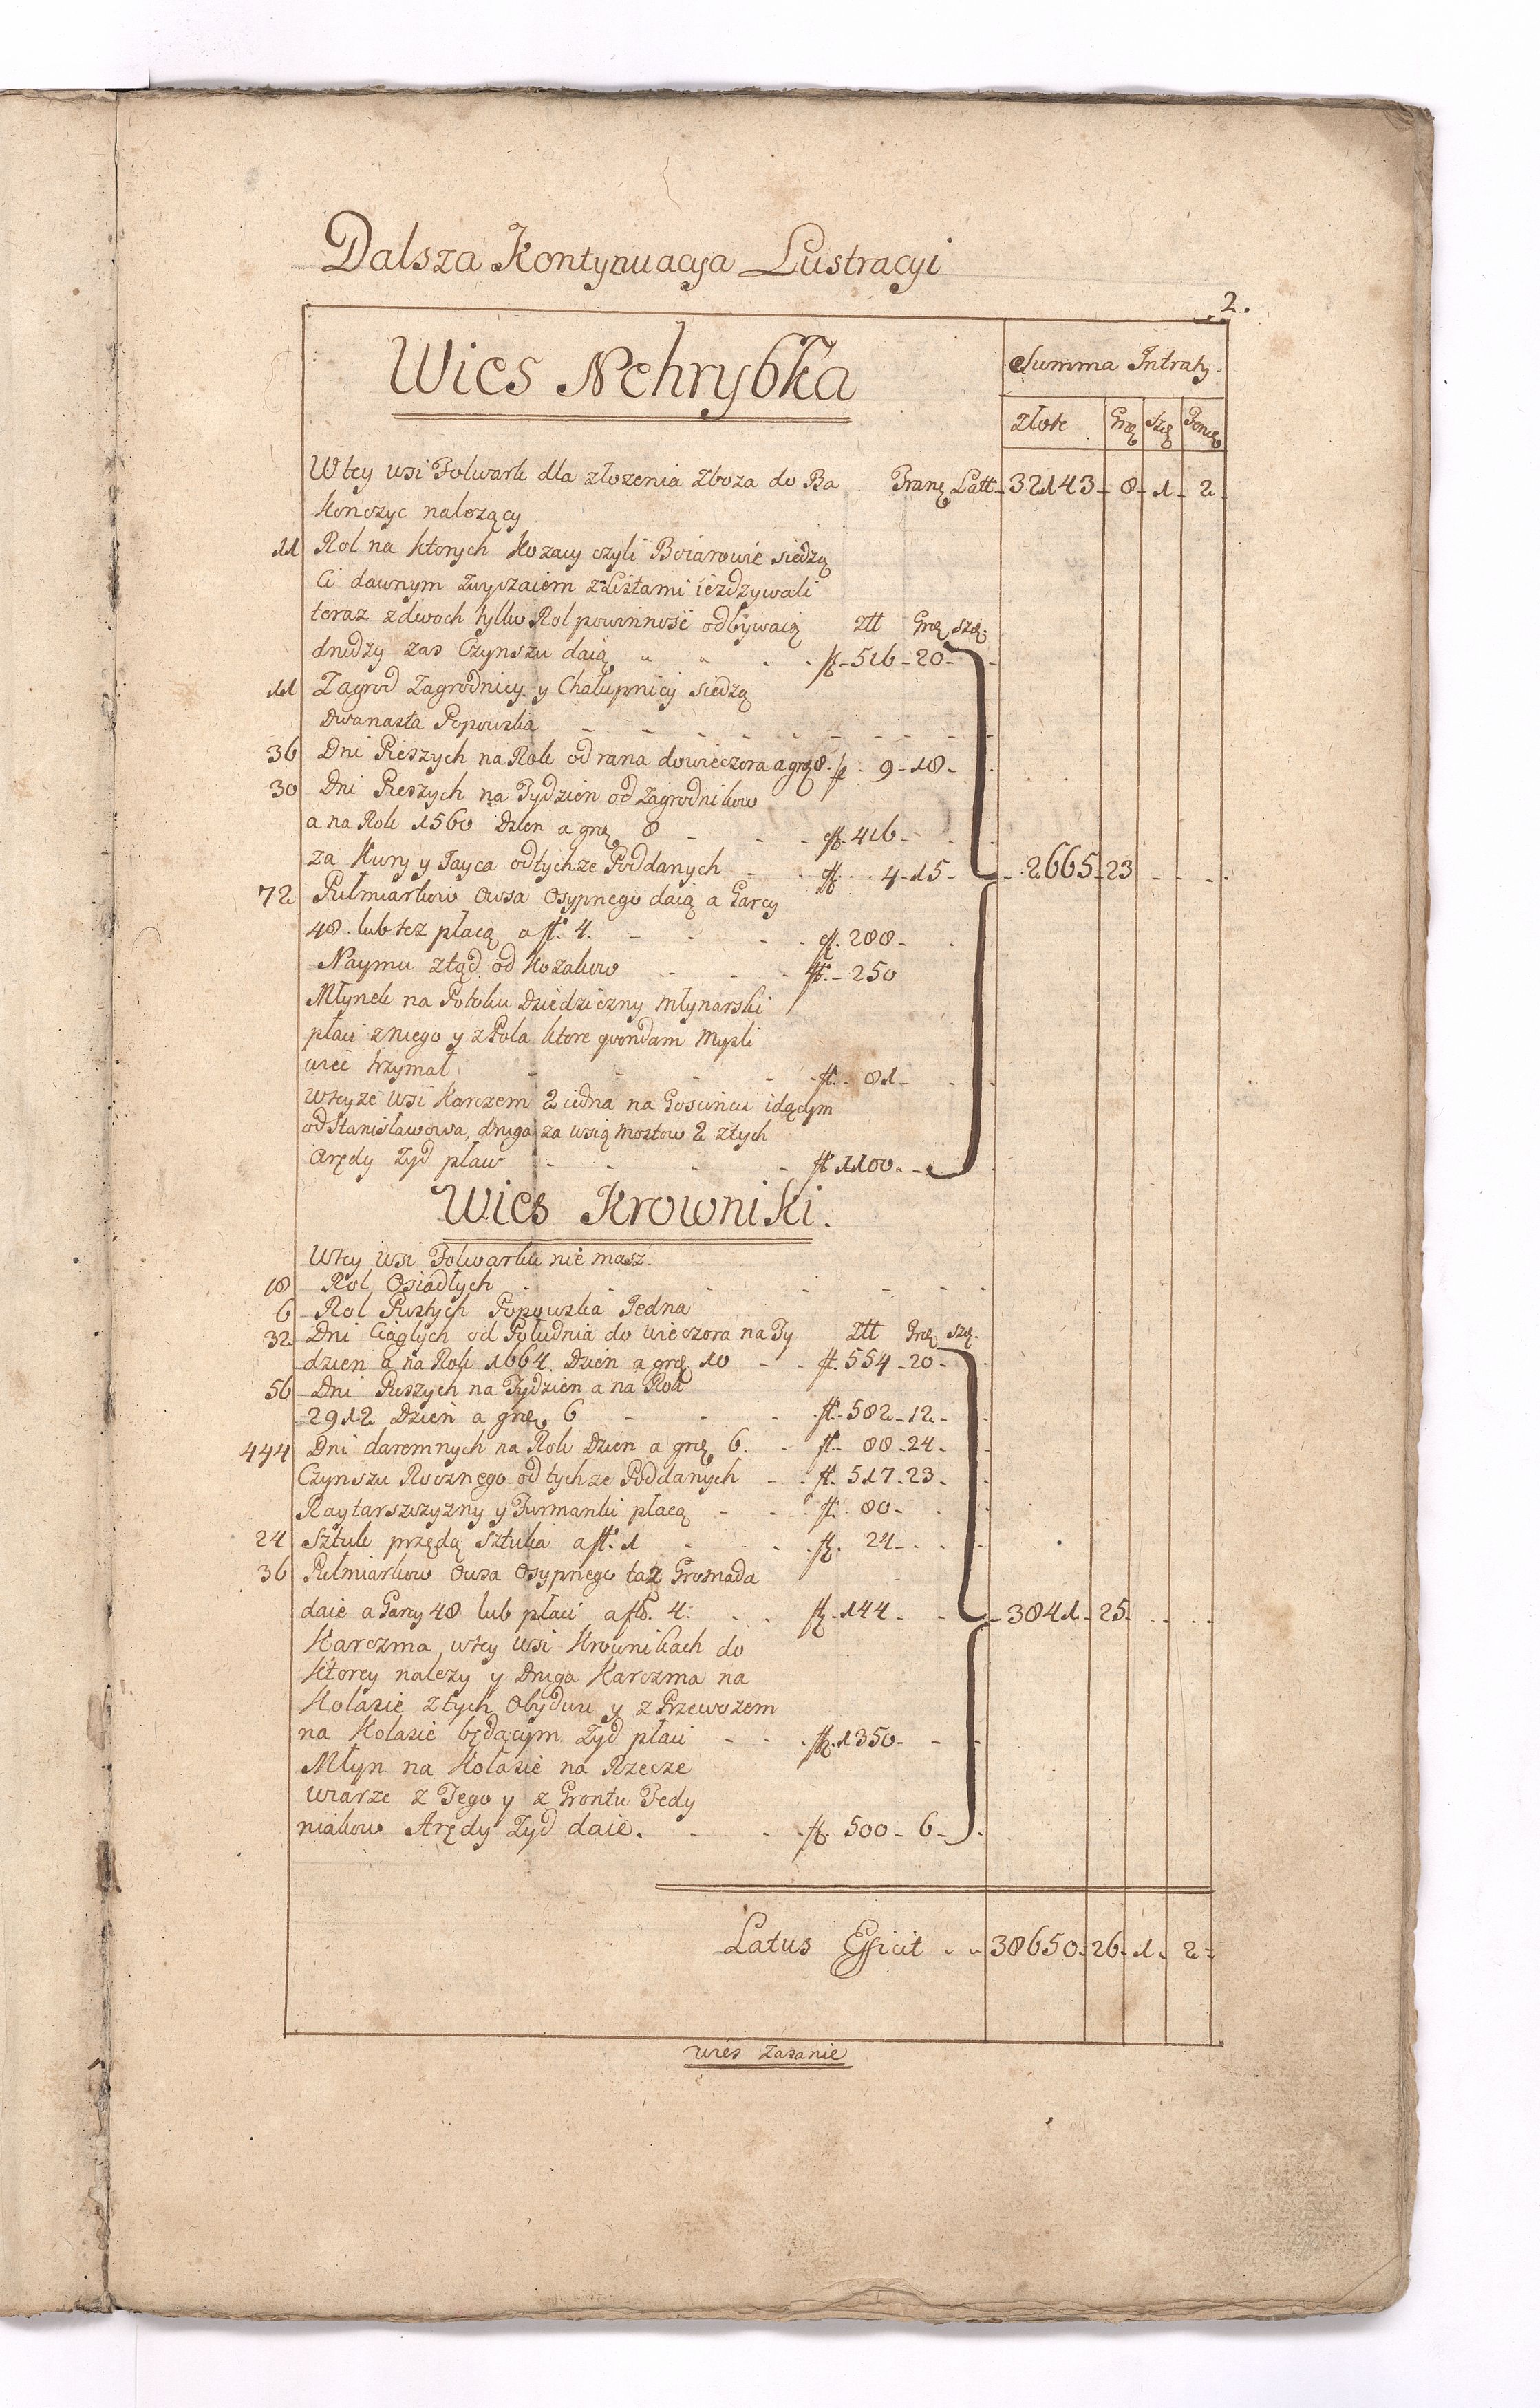 Dalsza Kontynuacya Lustracyi
2.
Wies Nehrybka
Summa Intraty.
złote Grz Szel Fenig
Wtey wsi Folwark dla złozenia Zboza do Ba Tranz Latt 32143 - 8 - 1 - 2
konczyc nalezący
11 Rol na ktorych Kozacy czyli Boiarowie siedzą
Ci dawnym zwyczaiem z Listami iezdzywali
teraz z dwoch tylko Rol powinność odbywaią ztt Grz szz.
drudzy zas Czynszu daią fl. 516 - 20
11 Zagrod Zagrodnicy y Chałupnicy siedzą
Dwanasta Popowska
36 Dni Pieszych na Rok od rana dowieczora a grz 8. fl 9 - 18
30 Dni Pieszych na Tydzien od Zagrodnikow
a na Rok 1560 Dzien a grz 8 fl. 416
za Kury y Jayca odtychze Poddanych fl. 4 - 15 2665 - 23
72 Pułmiarkow Owsa Osypnego daią a Garcy
48. lub tez płacą a fl. 4. fl. 288
Naymu ztąd od Kozakow fl. 250
Młynek na Potoku Dziedziczny Młynarski
płaci zniego y z Pola ktore quondam Mysli
wiec trzymał fl. 81
Wteyze wsi Karczem 2 iedna na Goscincu idącym
od Stanisławowa, druga za wsią Mostow 2 ztych
Arędy Zyd płaci fl. 1100.
Wies Krowniki.
Wtey wsi Folwarku nie masz.
18 Rol Osiadłych
6 Rol Pustych Popowska Jedna
32 Dni Ciągłych od Południa do wieczora na Ty ztt Grz szz.
dzien a na Rok 1664. Dzien a grz 10 fl. 554 - 20
56 Dni Pieszych na Tydzien a na Rok
2912 Dzień a grz 6 fl. 582 - 12
444 Dni daremnych na Rok Dzien a grz 6. fl. 88 - 24
Czynszu Rocznego od tychze Poddanych fl. 517 - 23
Raytarszczyzny y Furmanki płacą fl. 80
24 Sztuk przędą sztuka a fl. 1 fl. 24
36 Pułmiarkow Owsa Osypnego taz Gromada
daie a Garcy 48 lub płaci a fl. 4. fl. 144 3841 - 25
Karczma wtey wsi Krownikach do
ktorey nalezy y Druga Karczma na
Holasie z tych Obydwu y z Przewozem
na Holasie będącym Zyd płaci fl. 1350
Młyn na Holasie na Rzecze
Wiarze z Tego y z Grontu Fedy
niakow Arędy Zyd daie. fl. 500 - 6
Latus Efficit 38650 - 26 - 1 - 2
wies Zasanie